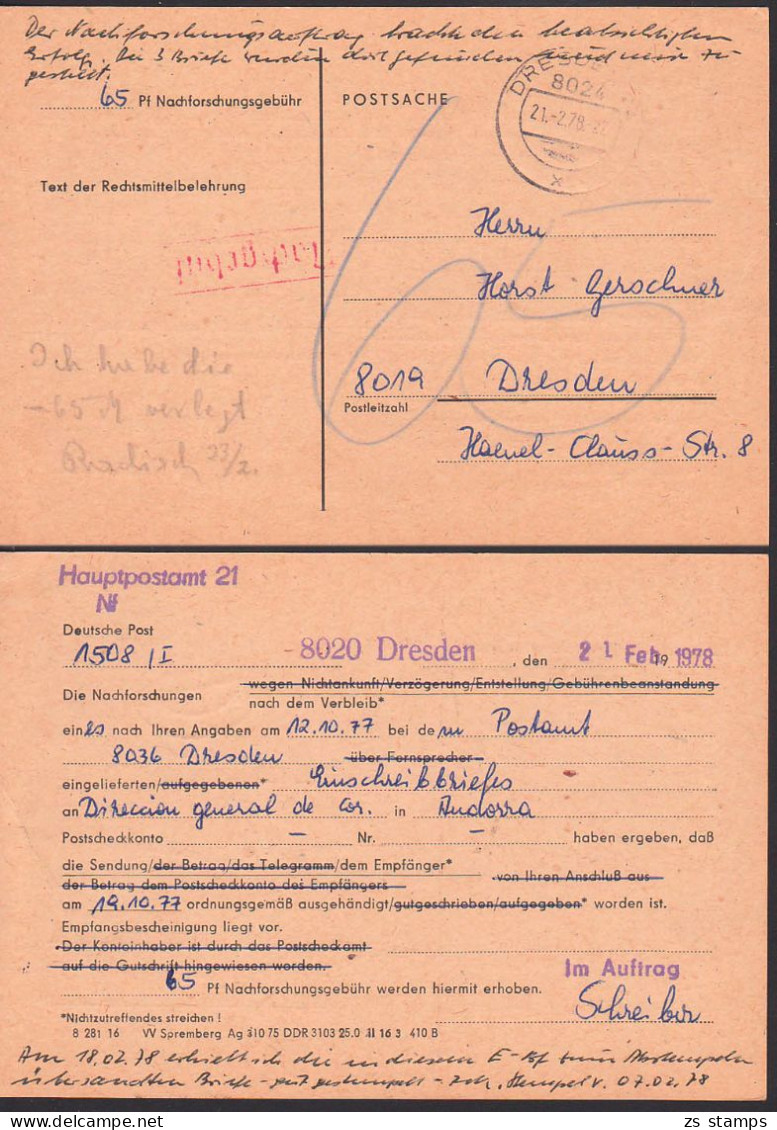 Der Nachforschungsauftrag brachte den beabsichtigten
Erfolg. Die 3 Briefe wurden dort gefunden und mir zu
gestellt.
65 Pf Nachforschungsgebühr
POSTSACHE
DRESDEN
8024
21.-2.78.-
x
Text der Rechtsmittelbelehrung
65
Herrn
Nachgebühr
Horst Gerschner
Ich habe die
-65 M verlegt
23/2.
8019 Dresden
Postleitzahl
Haenel-Clauss-Str. 8
Hauptpostamt 21
Nf
Deutsche Post
1508/I 8020 Dresden , den 21. Feb. 19 1978
wegen Nichtankunft/Verzögerung/Entstellung/Gebührenbeanstandung
Die Nachforschungen nach dem Verbleib*
eines nach Ihren Angaben am 12.10.77 bei dem Postamt
8036 Dresden über Fernsprecher
eingelieferten/aufgegebenen* Einschreibbriefes
an Direccion general de Cor. in Andorra
Postscheckkonto – Nr. – haben ergeben, daß
die Sendung/der Betrag/das Telegramm/dem Empfänger*
der Betrag dem Postscheckkonto des Empfängers von Ihren Anschluß aus
am 19.10.77 ordnungsgemäß ausgehändigt/gutgeschrieben/aufgegeben* worden ist.
Empfangsbescheinigung liegt vor.
Der Konteinhaber ist durch das Postscheckamt
auf die Gutschrift hingewiesen worden.
Im Auftrag
65 Pf Nachforschungsgebühr werden hiermit erhoben.
Schreiber
*Nichtzutreffendes streichen!
8 281 16 VV Spremberg Ag 310 75 DDR 3103 25.0 II 16 3 410 B
Am 18.02.78 erhielt ich die in diesem E-Bf zum Abstempeln
übersandten Briefe - gut gestempelt - zck, Stempel v. 07.02.78
zs stamps